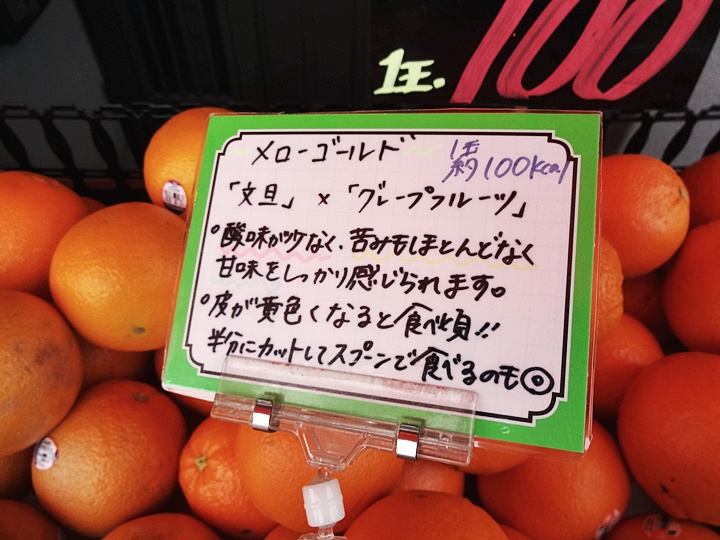 1玉.
100
メローゴールド
1玉
約100Kcal
「文旦」×「グレープフルーツ」
°酸味が少なく、苦みもほとんどなく
甘味をしっかり感じられます。
°皮が黄色くなると食べ頃!!
半分にカットしてスプーンで食べるのも◎